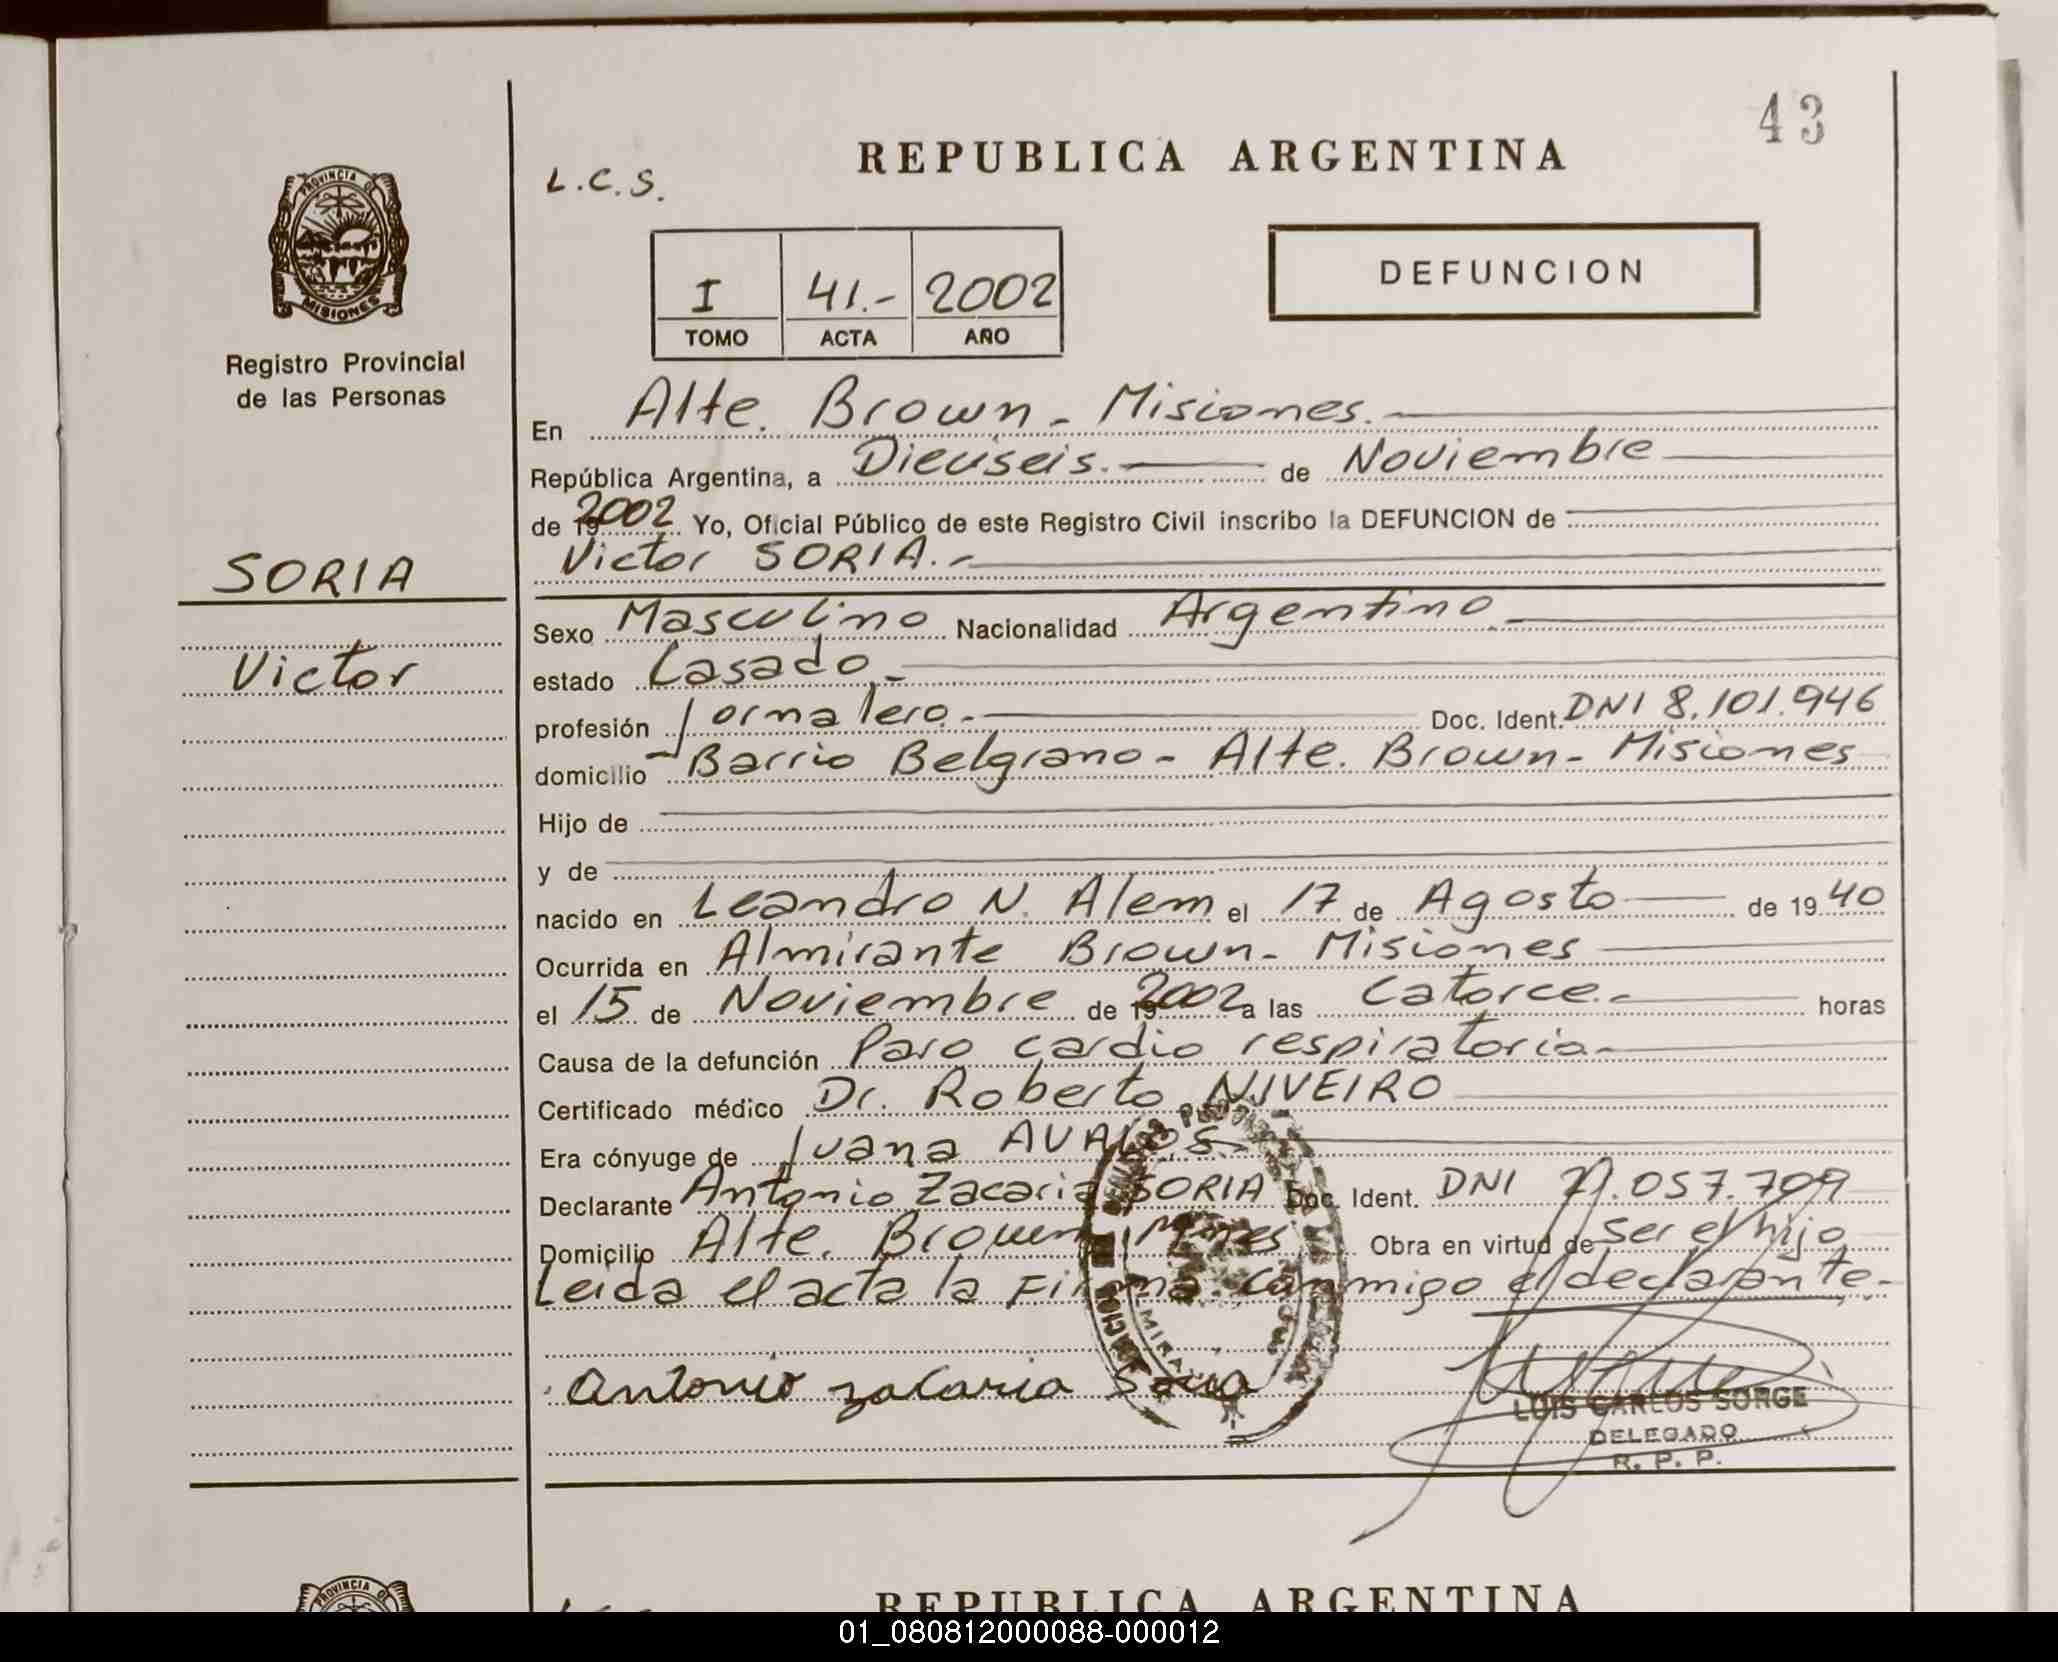 43
REPUBLICA ARGENTINA
L.C.S.
PROVINCIA DE
MISIONES
DEFUNCION
I 41.- 2002
TOMO ACTA AÑO
Registro Provincial
de las Personas
En Alte. Brown - Misiones.
República Argentina, a Dieciseis. de Noviembre
de 19 2002 Yo, Oficial Público de este Registro Civil inscribo la DEFUNCION de
Victor SORIA.-
SORIA
Victor
Sexo Masculino Nacionalidad Argentino
estado Casado.-
profesión Jornalero.- Doc. Ident. DNI 8.101.946
domicilio -Barrio Belgrano- Alte. Brown- Misiones
Hijo de
y de
nacido en Leandro N. Alem el 17 de Agosto de 19 40
Ocurrida en Almirante Brown- Misiones
el 15 de Noviembre de 19 2002 a las Catorce.- horas
Causa de la defunción Paro cardio respiratorio-
Certificado médico Dr. Roberto NIVEIRO
Era cónyuge de Juana AVALOS-
Declarante Antonio Zacaria SORIA Doc. Ident. DNI .057.709
Domicilio Alte. Brown Mnes Obra en virtud de ser el hijo
Leida el acta la Firma conmigo el declarante.-
Antonio zacaria Soria
LUIS CARLOS SORGE
DELEGADO
R. P. P.
PROVINCIA DE
REPUBLICA ARGENTINA
01_080812000088-000012